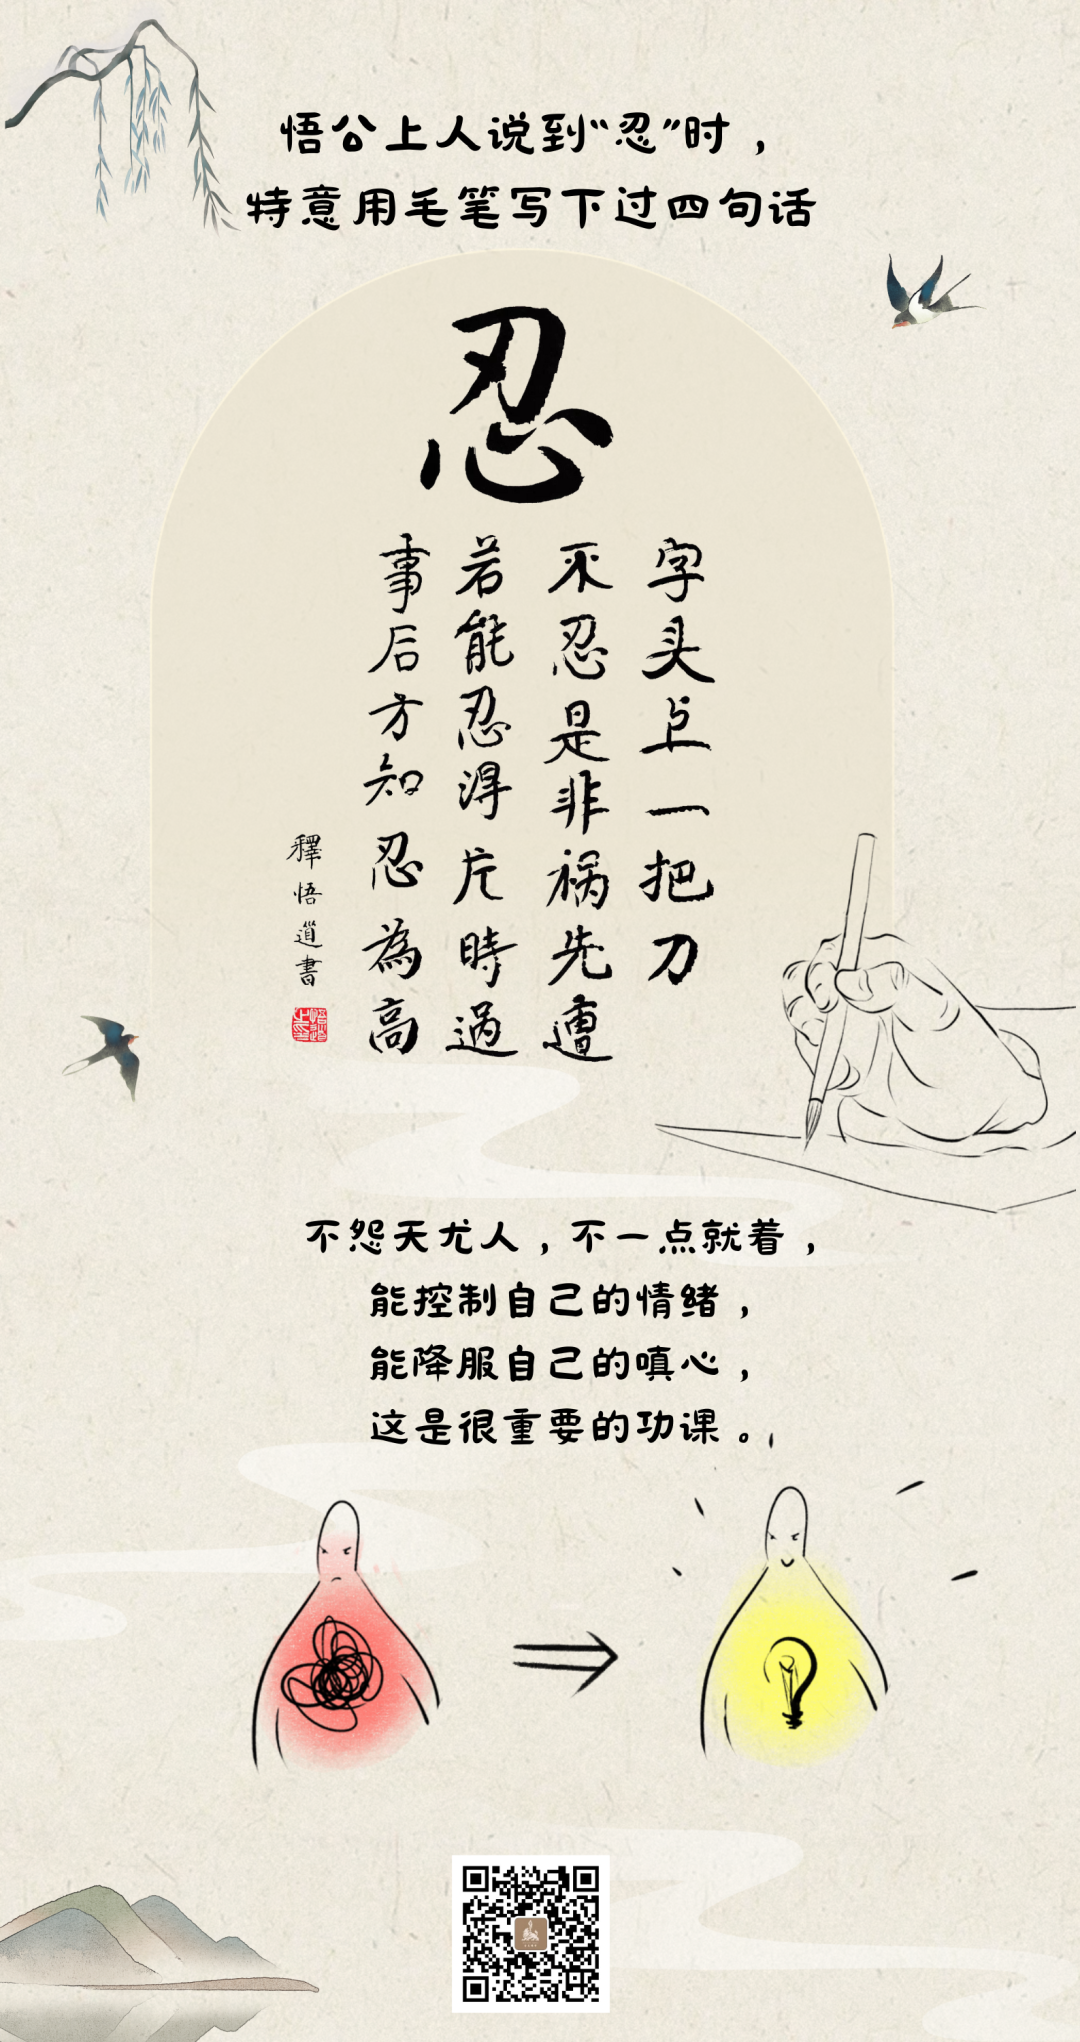 悟公上人说到“忍”时，
特意用毛笔写下过四句话
忍
字头上一把刀
不忍是非祸先遭
若能忍得片時過
事后方知忍為高
釋悟道書
不怨天尤人，不一点就着，
能控制自己的情绪，
能降服自己的嗔心，
这是很重要的功课。